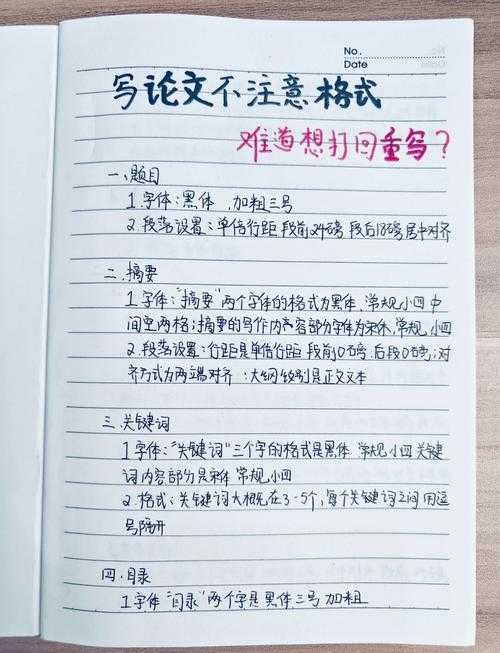 No.
Date
写论文不注意格式
难道想打回重写?
一、题目
1.字体:黑体,加粗三号
2.段落设置:单倍行距 段前24磅 段后18磅 居中对齐
二.摘要
1字体:"摘要"两个字体的格式为黑体、常规小四中
间空两格;摘要的写作内容部分字体为宋体,常规,小四
2.段落设置:行距是单倍行距 段前0磅.后段0磅;对
齐方式为两端对齐:大纲级别是正文文本
三.关键词
1字体:"关键词"三个字的格式是黑体 常规小四 关键
词内容部分是宋体 常规小四
2.格式:关键词大概在3-5个,每个关键词之间用逗
号隔开
四.目录
1字体"目录"两个字是黑体三号 加粗